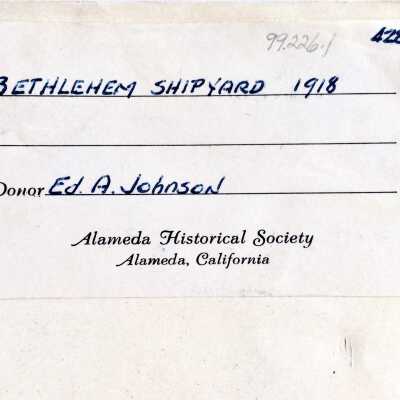 99.226.1
BETHLEHEM SHIPYARD 1918
Donor Ed. A. Johnson
Alameda Historical Society
Alameda, California